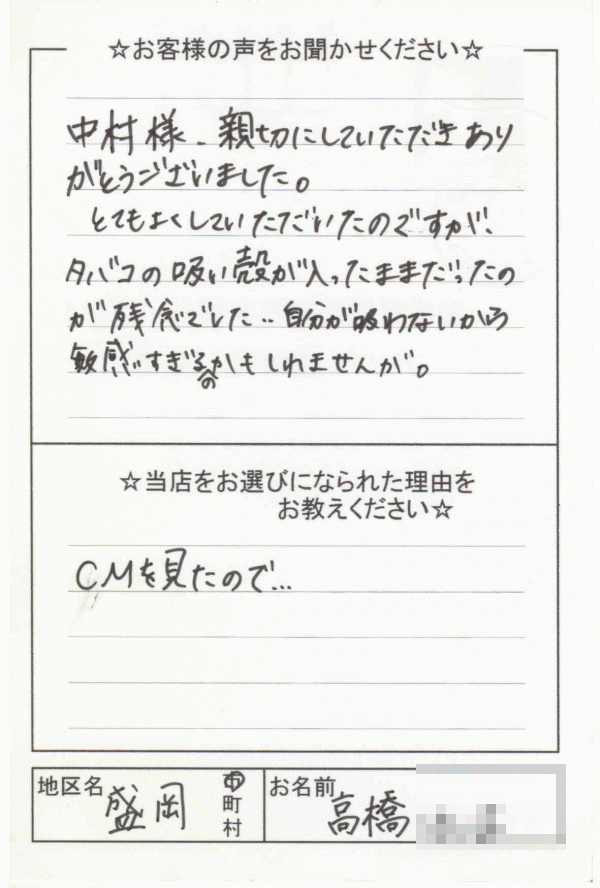 ☆お客様の声をお聞かせください☆
中村様、親切にしていただきあり
がとうございました。
とてもよくしていただいたのですが、
タバコの吸い殻が入ったままだったの
が残念でした‥自分が吸わないから
敏感すぎるのかもしれませんが。
☆当店をお選びになられた理由を
お教えください☆
CMを見たので…
地区名 盛岡 市町村
お名前 高橋